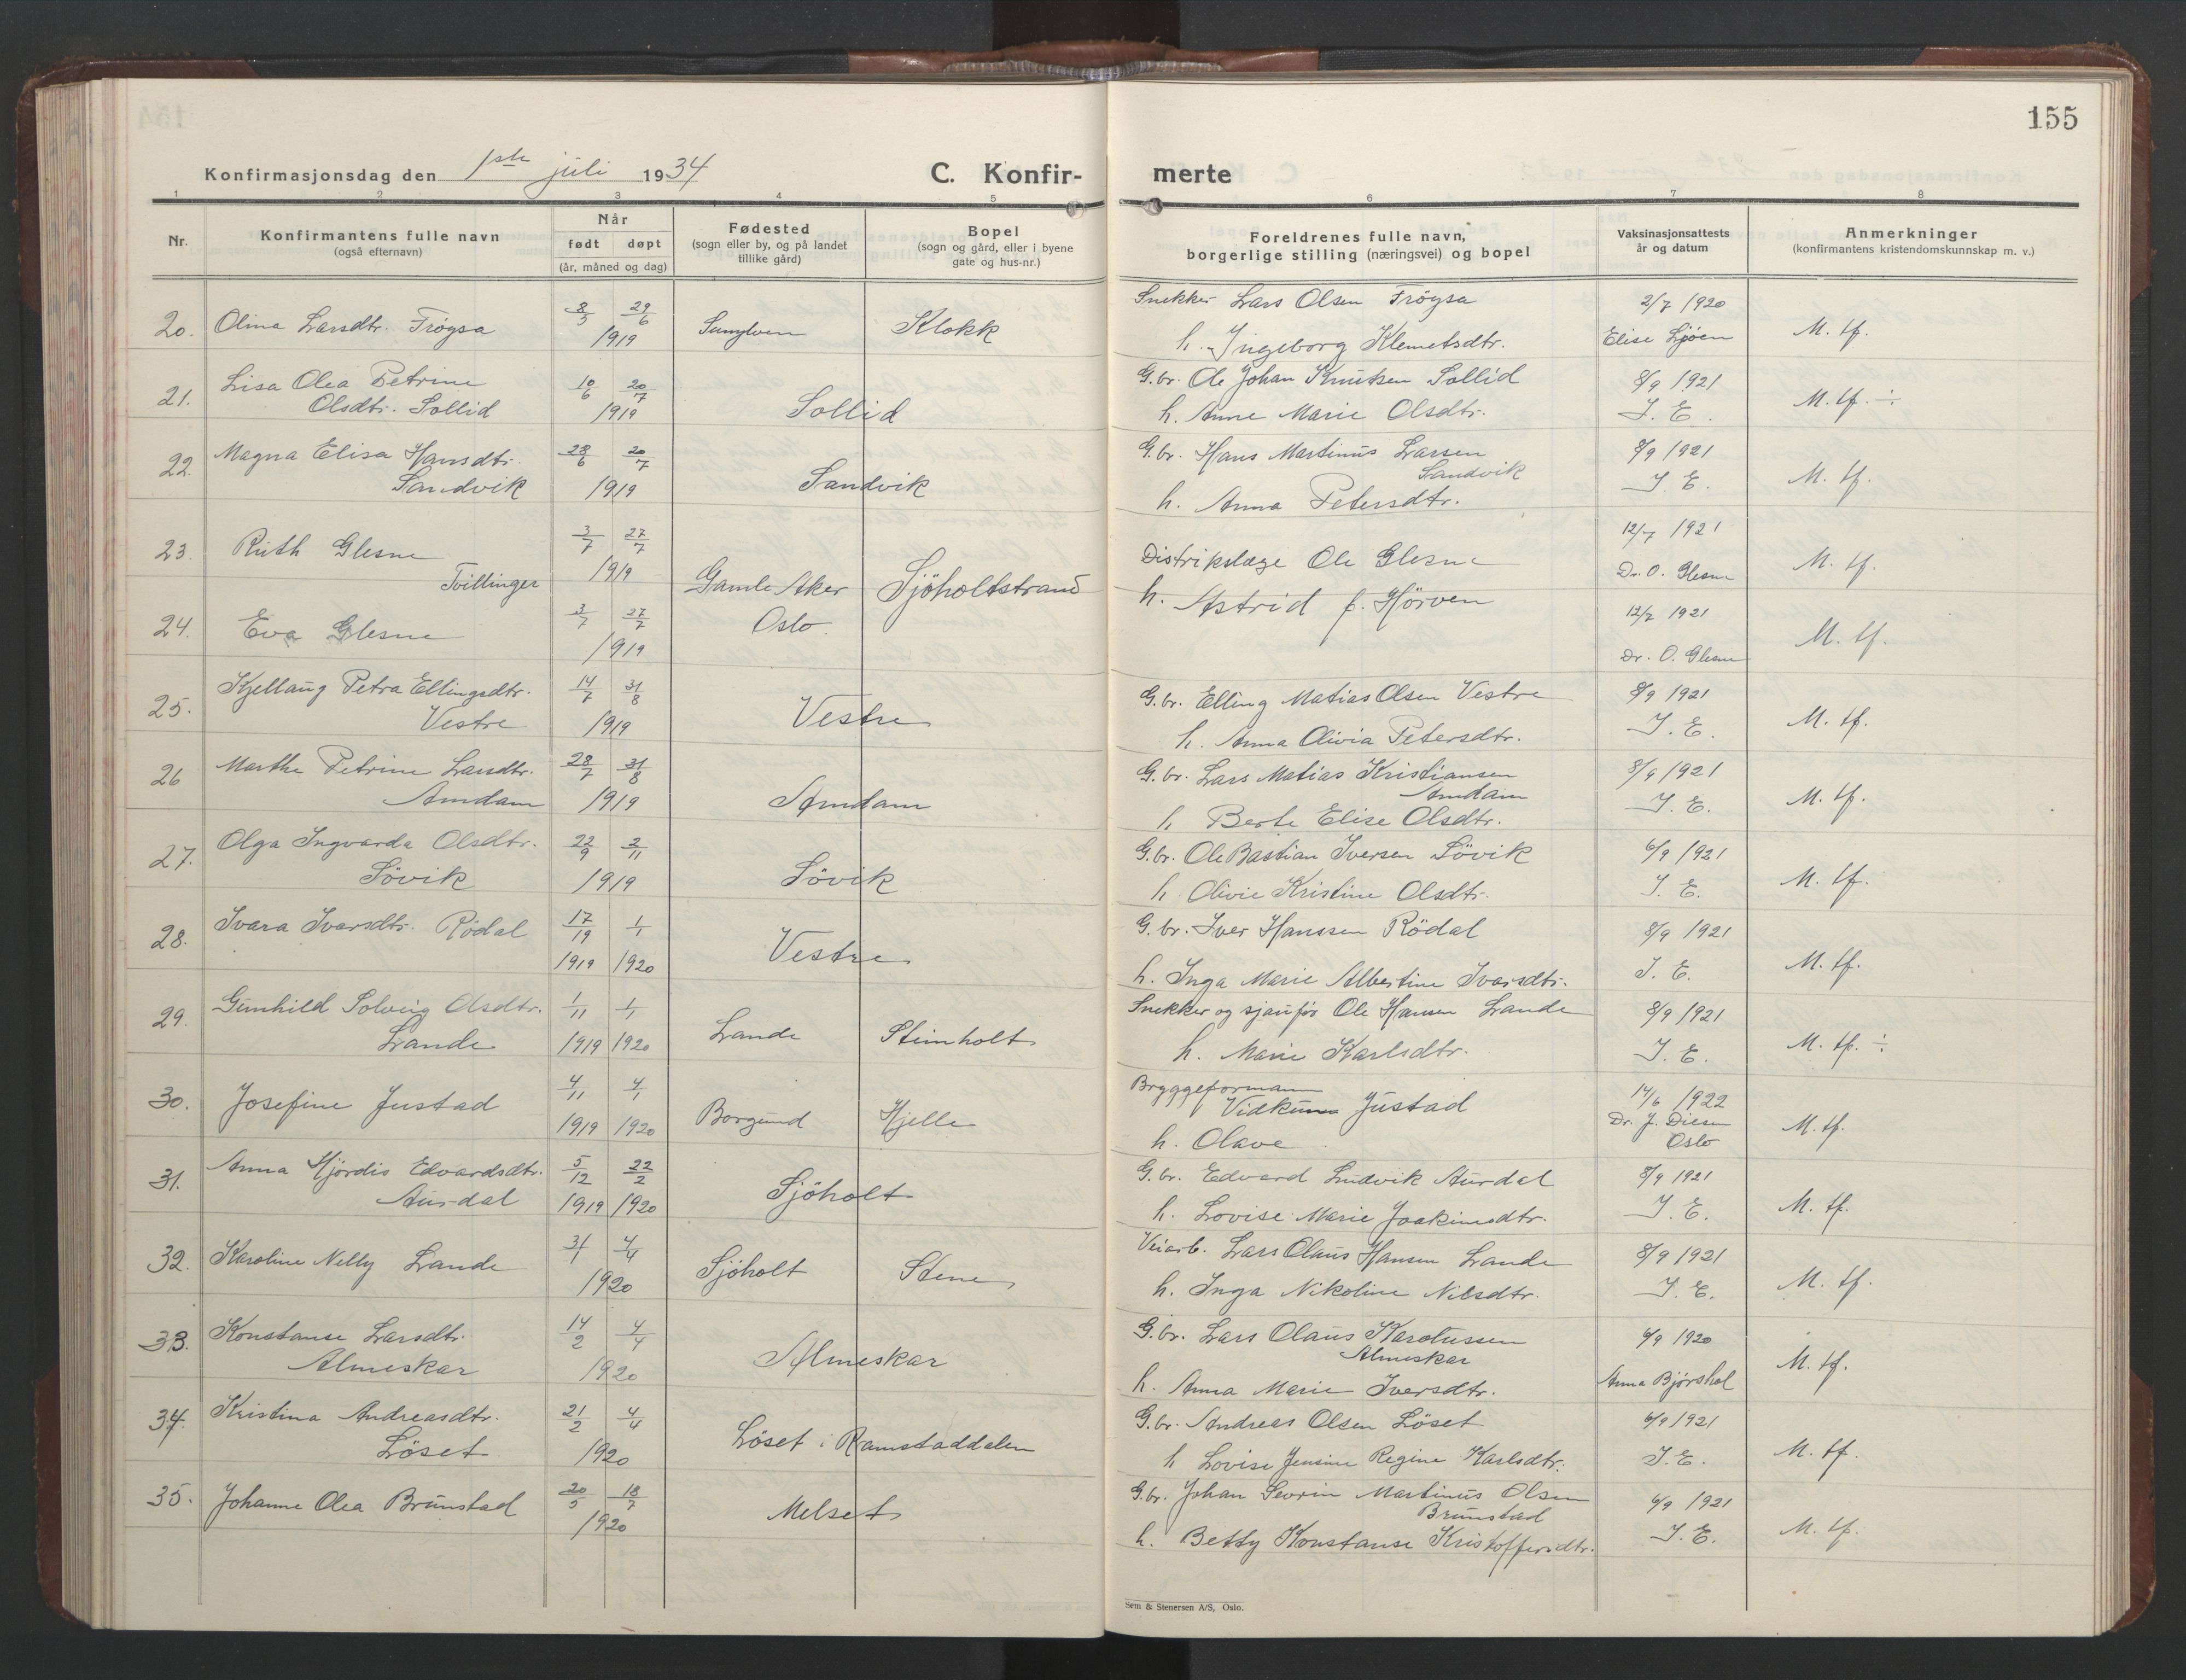 155
Konfirmasjonsdag den 1ste juli 1934
C. Konfir-
merte
1 2 3 4 5 6 7 8
Nr.
Konfirmantens fulle navn
(også efternavn)
Når
født døpt
(år, måned og dag)
Fødested
(sogn eller by, og på landet
tillike gård)
Bopel
(sogn og gård, eller i byene
gate og hus-nr.)
Foreldrenes fulle navn,
borgerlige stilling (næringsvei) og bopel
Vaksinasjonsattests
år og datum
Anmerkninger
(konfirmantens kristendomskunnskap m. v.)
20. Olina Larsdtr. Frøysa 8/5 29/6 1919 Sunylven Klokk
Snekker Lars Olsen Frøysa 2/7 1920
h. Ingeborg Klemetsdtr. Elise Ljøen M. tf.
21. Lisa Olea Petrine 10/6 20/7
Olsdtr. Sollid 1919 Sollid
G.br. Ole Johan Knutsen Sollid 8/9 1921
h. Anne Marie Olsdtr. I. E. M. tf. ÷
22. Magna Elisa Hansdtr. 28/6 20/7
Sandvik 1919 Sandvik
G.br. Hans Martinus Larsen 8/9 1921
Sandvik
h. Anna Petersdtr. I. E. M. tf.
23. Ruth Glesne 3/7 27/7 1919
Tvillinger
Gamle Aker Sjøholtstrand
Oslo
Distrikslæge Ole Glesne 12/7 1921
h. Astrid f. Hørven Dr. O. Glesne M. tf.
24. Eva Glesne 3/7 27/7 1919
12/7 1921
Dr. O. Glesne M. tf.
25. Kjellaug Petra Ellingsdtr. 14/7 31/8
Vestre 1919 Vestre
G.br. Elling Matias Olsen Vestre 8/9 1921
h. Anna Olivia Petersdtr. I. E. M. tf.
26 Marthe Petrine Larsdtr. 28/7 31/8
Amdam 1919 Amdam
G.br. Lars Matias Kristiansen 8/9 1921
Amdam
h Berte Elise Olsdtr. I. E. M. tf.
27. Olga Ingvarda Olsdtr. 22/9 2/11
Søvik 1919 Søvik
G.br. Ole Bastian Iversen Søvik 6/9 1921
h. Olivie Kristine Olsdtr. I. E. M. tf.
28. Ivara Ivarsdtr. Rødal 17/19 1/1
1919 1920 Vestre
G.br. Iver Hanssen Rødal 8/9 1921
h. Inga Marie Albertine Ivarsdtr. I. E. M. tf.
29. Gunhild Solveig Olsdtr. 1/11 1/1
Lande 1919 1920 Lande Steinholt
Snekker og sjauför Ole Hansen Lande 8/9 1921
h. Marie Karlsdtr. I. E. M. tf. ÷
30. Josefine Justad 4/11 4/1
1919 1920 Borgund Hjelle
Bryggeformann 14/6 1922
Vidkunn Justad Dr. J. Diesen
h. Olave Oslo M. tf.
31. Anna Hjørdis Edvardsdtr. 5/12 22/2
Aurdal 1919 1920 Sjøholt
G.br. Edvard Ludvik Aurdal 8/9 1921
h. Lovise Marie Joakimsdtr. I. E. M. tf.
32. Karoline Nelly Lande 31/1 4/4
1920 Sjøholt Stene
Veiarb. Lars Olaus Hansen Lande 8/9 1921
h. Inga Nikoline Nilsdtr. I. E. M. tf.
33. Konstanse Larsdtr. 14/2 4/4
Almeskar 1920 Almeskar
G.br. Lars Olaus Karolussen 6/9 1920
Almeskar
h. Anna Marie Iversdtr. Anna Bjørshol M. tf.
34. Kristina Andreasdtr. 21/2 4/4
Løset 1920 Løset i Ramstaddalen
G.br. Andreas Olsen Løset 6/9 1921
h Lovise Jensine Regine Karlsdtr. I. E. M. tf.
35. Johanne Olea Brunstad 20/5 18/7
1920 Melset
G.br. Johan Sevrin Martinus Olsen 6/9 1921
Brunstad
h. Betty Konstanse Kristoffersdtr. I. E. M. tf.
Sem & Stenersen A/S, Oslo.